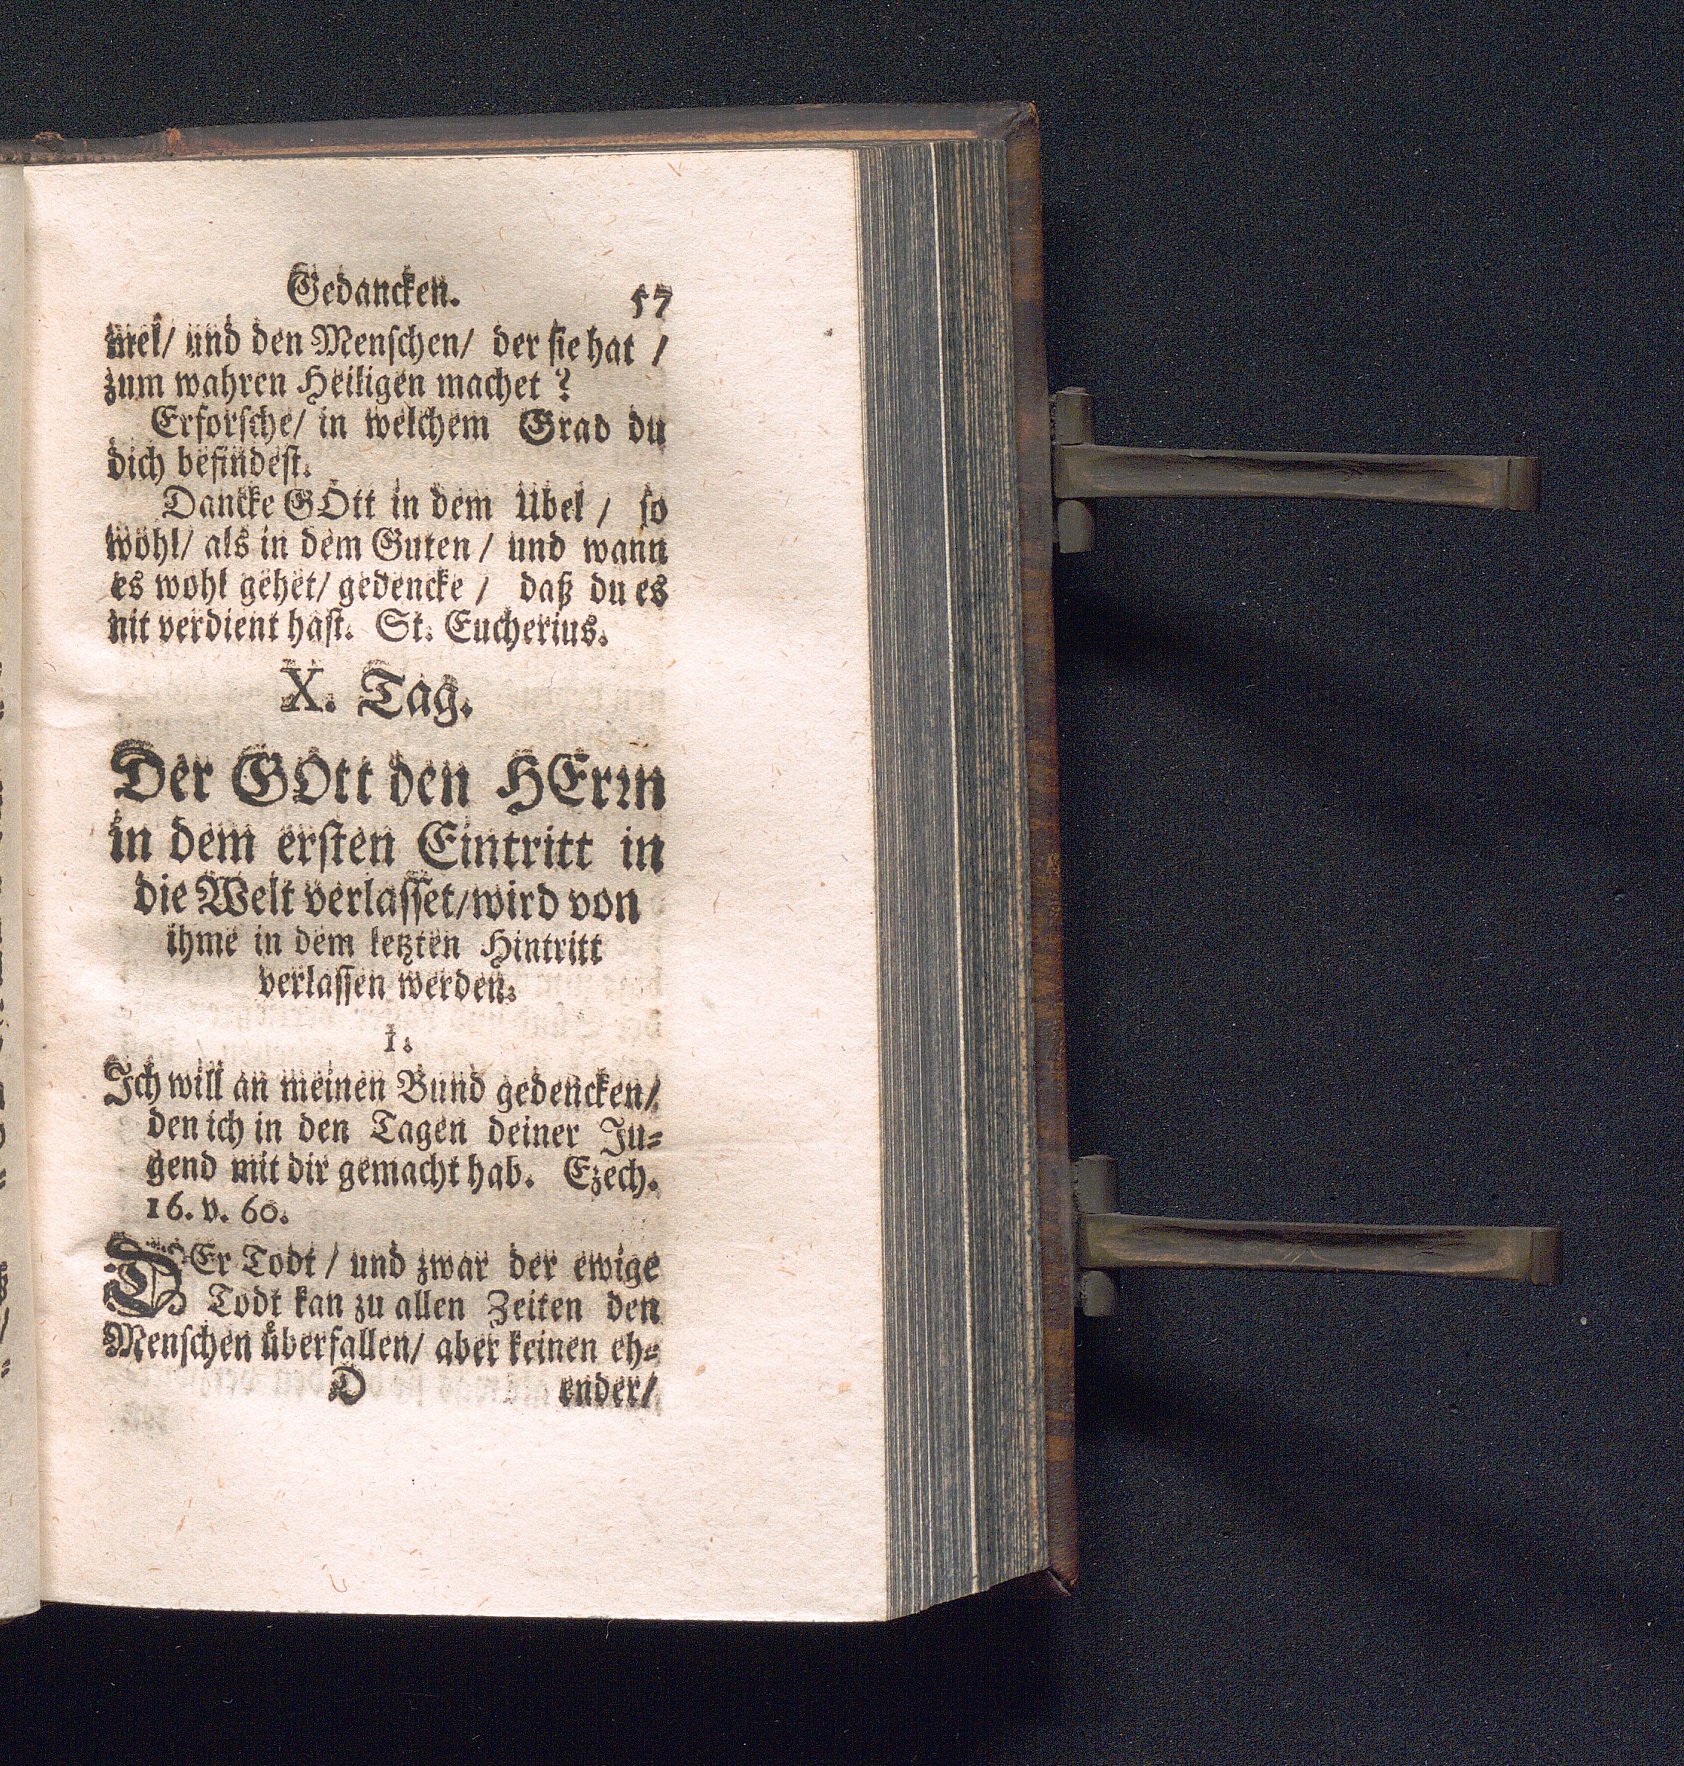 Gedancken. 57
mel/ und den Menschen/ der sie hat /
zum wahren Heiligen machet ?
Erforsche/ in welchem Grad du
dich befindest.
Dancke GOtt in dem Ubel / so
wohl/ als in dem Guten / und wann
es wohl gehet/ gedencke / daß du es
nit verdient hast. St. Eucherius.
X. Tag.
Der GOtt den HErꝛn
in dem ersten Eintritt in
die Welt verlasset/wird von
ihme in dem letzten Hintritt
verlassen werden.
1.
Ich will an meinen Bund gedencken/
den ich in den Tagen deiner Ju-
gend mit dir gemacht hab. Ezech.
16. v. 60.
DEr Todt / und zwar der ewige
Todt kan zu allen Zeiten den
Menschen überfallen/ aber keinen eh-
D ender/